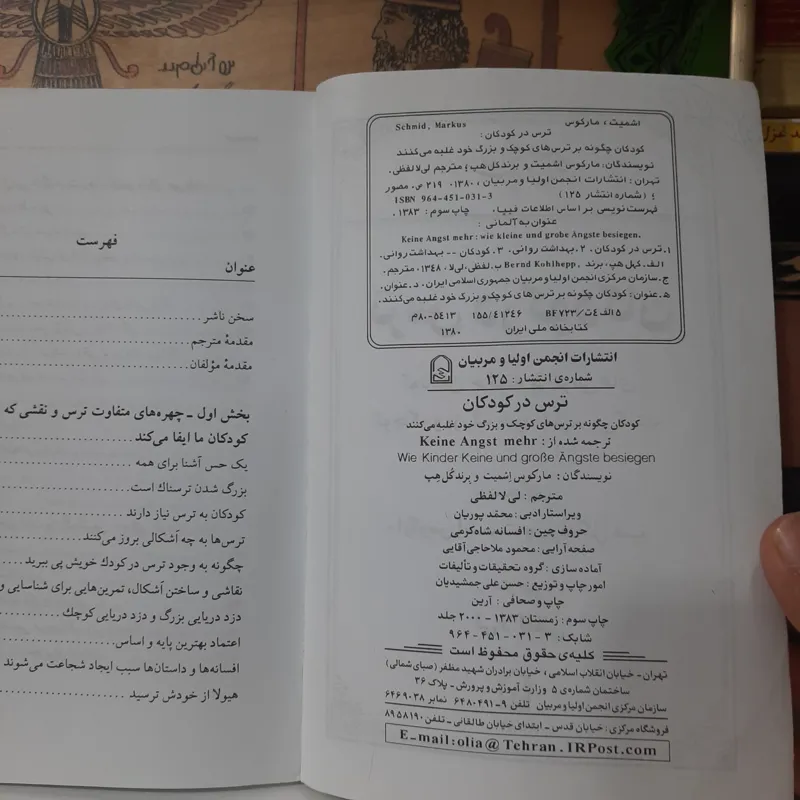 اشمیت، مارکوس Schmid, Markus
ترس در کودکان:
کودکان چگونه بر ترس‌های کوچک و بزرگ خود غلبه می‌کنند
نویسندگان: مارکوس اشمیت و برندکل هپ؛ مترجم لی‌لا لفظی.
تهران: انتشارات انجمن اولیا و مربیان، ۱۳۸۰. ۲۱۹ ص. مصور
؛ (شماره انتشار ۱۲۵) ISBN 964-451-031-3
فهرست نویسی بر اساس اطلاعات فیپا. چاپ سوم: ۱۳۸۳.
عنوان به آلمانی:
Keine Angst mehr: wie kleine und grobe Ängste besiegen.
۱. ترس در کودکان. ۲. بهداشت روانی. ۳. کودکان -- بهداشت روانی.
الف. کهل هپ، برند .Bernd Kohlhepp ب. لفظی، لی‌لا، ۱۳۴۸، مترجم.
ج. سازمان مرکزی انجمن اولیا و مربیان جمهوری اسلامی ایران. د. عنوان.
ه. عنوان: کودکان چگونه بر ترس های کوچک و بزرگ خود غلبه می‌کنند.
۵ الف ۴ ت/ BF ۷۲۳ ۱۵۵/۴۱۲۴۶ ۵۴۱۳-۸۰م
کتابخانه ملی ایران ۱۳۸۰
انتشارات انجمن اولیا و مربیان
شماره‌ی انتشار: ۱۲۵
ترس در کودکان
کودکان چگونه بر ترس‌های کوچک و بزرگ خود غلبه می‌کنند
ترجمه شده از: Keine Angst mehr
Wie Kinder Keine und große Ängste besiegen
نویسندگان: مارکوس اشمیت و برندکُل هِپ
مترجم: لی لا لفظی
ویراستار ادبی: محمّد پوریان
حروف چین: افسانه شاه‌کرمی
صفحه آرایی: محمود ملاحاجی آقایی
آماده سازی: گروه تحقیقات و تألیفات
امور چاپ و توزیع: حسن علی جمشیدیان
چاپ و صحافی: آرین
چاپ سوم: زمستان ۱۳۸۳ - ۲۰۰۰ جلد
شابک: ۳ - ۰۳۱ - ۴۵۱ - ۹۶۴
کلیه‌ی حقوق محفوظ است
تهران - خیابان انقلاب اسلامی، خیابان برادران شهید مظفر (صبای شمالی)
ساختمان شماره‌ی ۵ وزارت آموزش و پرورش - پلاک ۳۶
سازمان مرکزی انجمن اولیا و مربیان تلفن ۹-۶۴۸۰۴۹۱ نمابر ۶۴۶۹۰۳۸
فروشگاه مرکزی: خیابان قدس - ابتدای خیابان طالقانی - تلفن ۸۹۵۸۱۹۰
E-mail:olia@Tehran.IRPost.com
فهرست
عنوان
سخن ناشر
مقدمۀ مترجم
مقدمۀ مؤلفان
بخش اول - چهره‌های متفاوت ترس و نقشی که
کودکان ما ایفا می‌کند
یک حس آشنا برای همه
بزرگ شدن ترسناک است
کودکان به ترس نیاز دارند
ترس‌ها به چه اَشکالی بروز می‌کنند
چگونه به وجود ترس در کودک خویش پی ببرید
نقاشی و ساختن اَشکال، تمرین‌هایی برای شناسایی و
دزد دریایی بزرگ و دزد دریایی کوچک
اعتماد بهترین پایه و اساس
افسانه‌ها و داستان‌ها سبب ایجاد شجاعت می‌شوند
هیولا از خودش ترسید